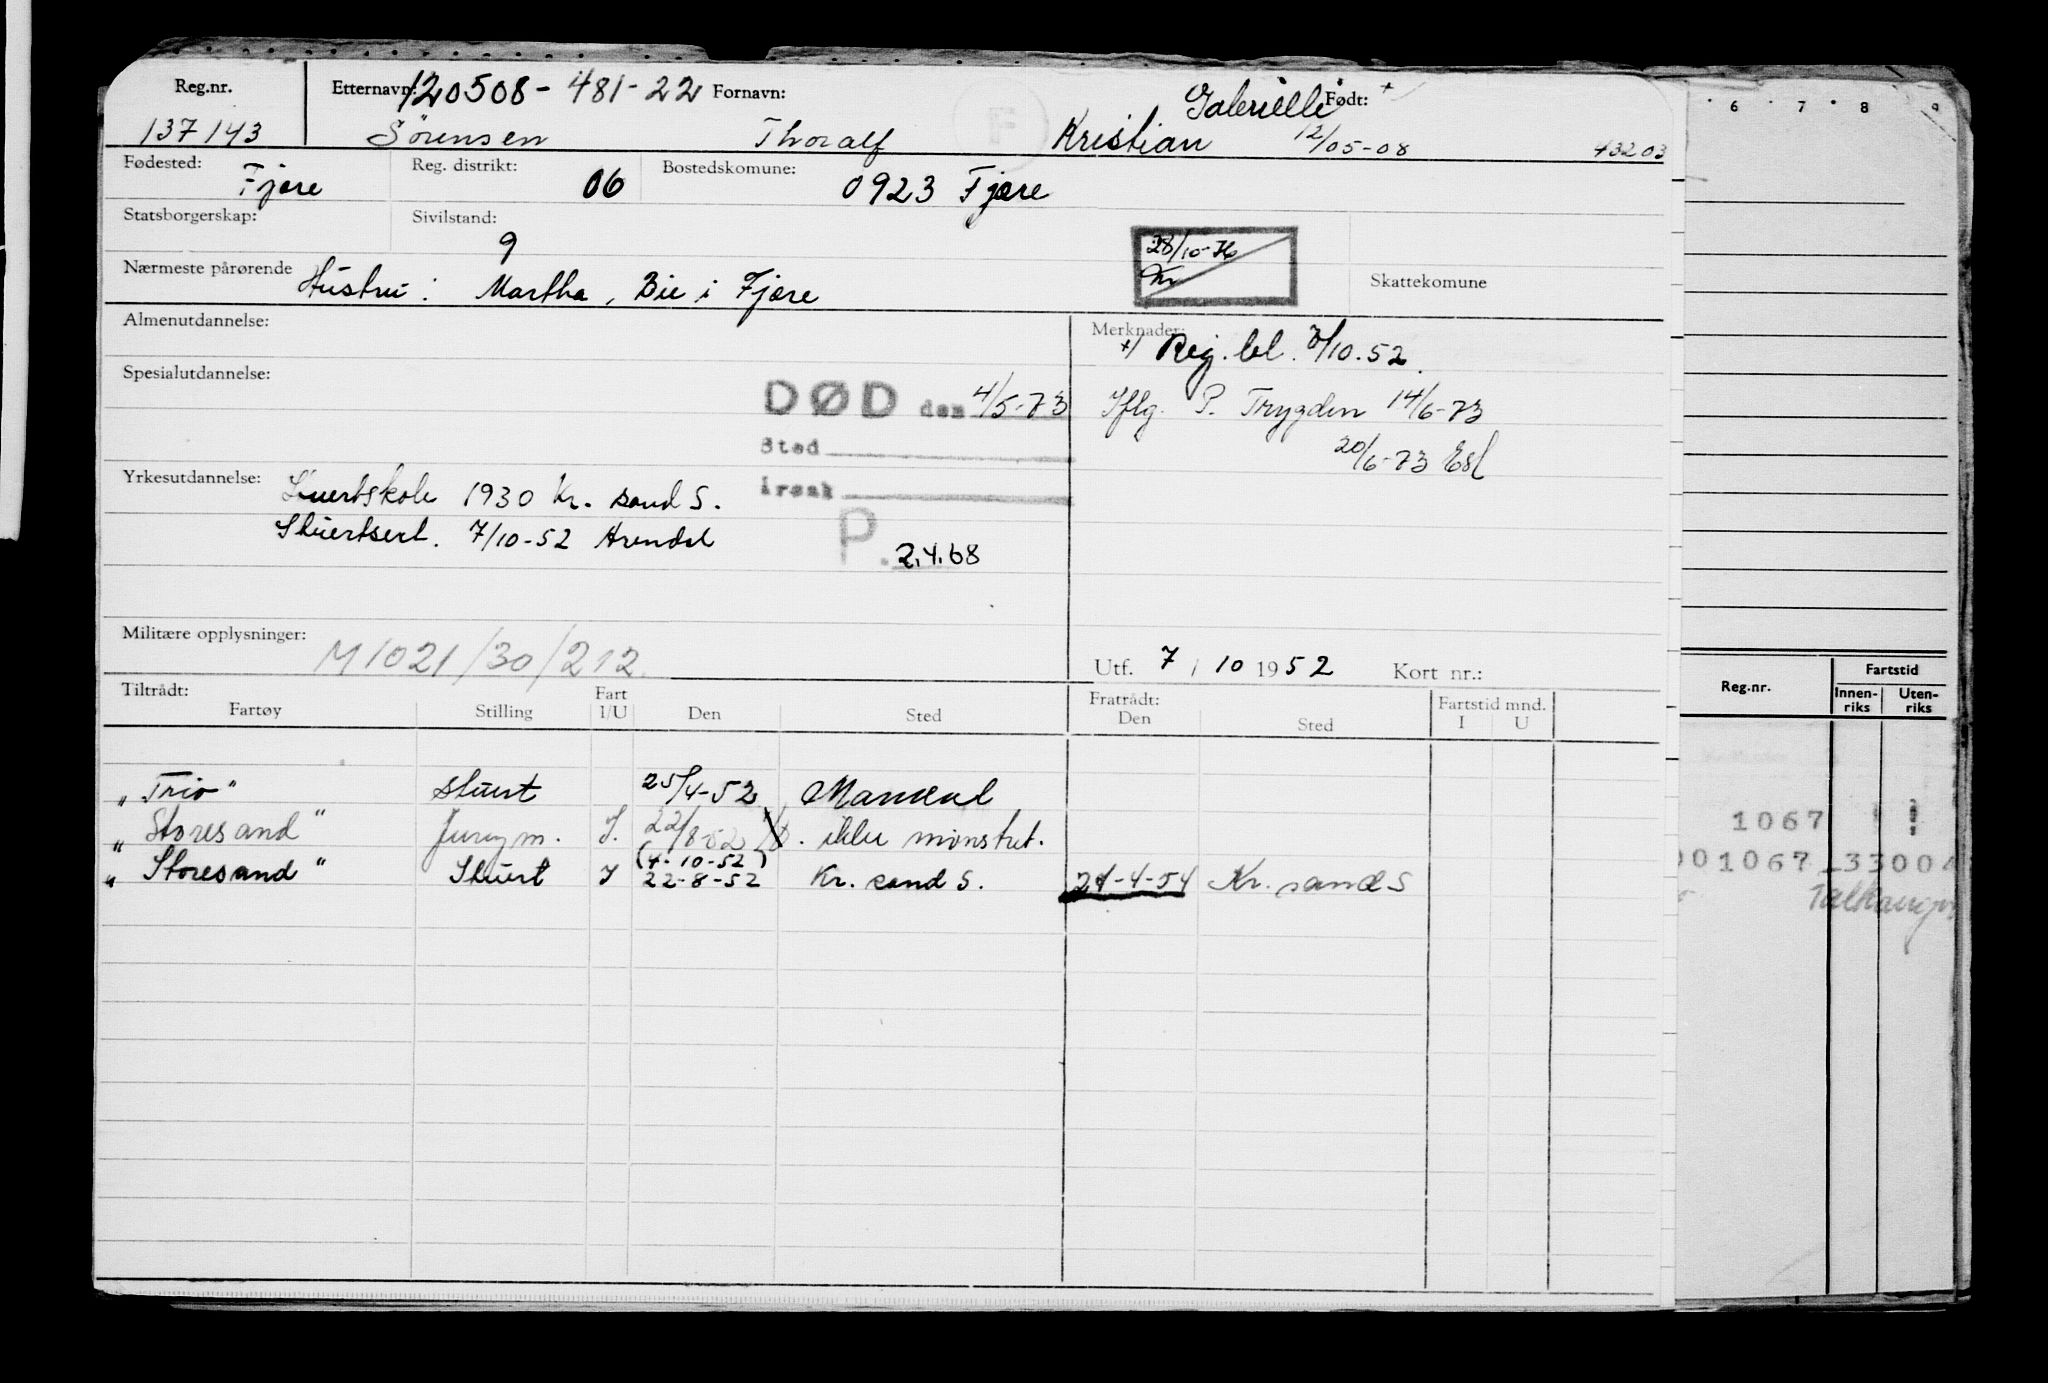 Reg.nr. Etternavn: 120508-481-22 Fornavn: Født: +
137143 Sörensen Thoralf Kristian 12/05-08 43203
Fødested: Fjære Reg. distrikt: 06 Bostedskomune: 0923 Fjære
Statsborgerskap: Sivilstand: 9
28/10-76
Kr
Nærmeste pårørende Hustru: Martha, Bie i Fjære Skattekomune
Almenutdannelse:
Merknader:
+) Reg. bl. 7/10.52.
Spesialutdannelse:
DØD den 4/5-73 Iflg. P. Trygden 14/6-73
Sted 20/6-73
Årsak
Yrkesutdannelse: Stuertskole 1930 Kr. sand S.
Stuertsert. 7/10-52 Arendal
P. 2.4.68
Militære opplysninger: M1021/30/212.
Utf. 7 / 10 1952 Kort nr.:
Tiltrådt: Fratrådt:
Fartøy Stilling Fart I/U Den Sted Den Sted Fartstid mnd. I U
"Trio" stuert 25/4-52 Mandal
"Storesand" Jungm. I. 22/8-52 ikke mønstret.
"Storesand" Stuert I (4-10-52) 22-8-52 Kr. sand S. 21-4-54 Kr. sand S
6 7 8 9
Reg.nr. Fartstid
Innen-riks Uten-riks
1067
001067 33004